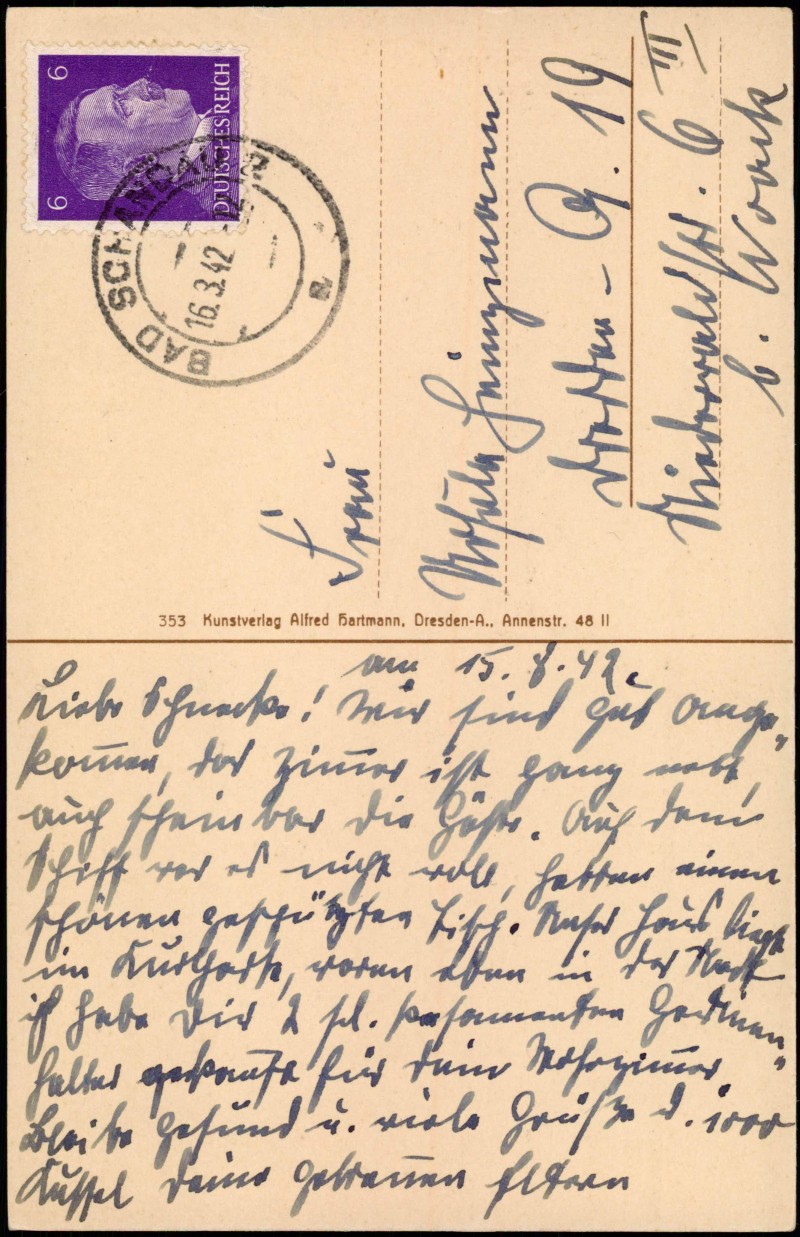 6 6
DEUTSCHES REICH
BAD SCHANDAU 2
16.3.42 -12
a
Frau
Heinzmann
Dresden - A. 19
Niederwaldstr. 6 III
b. Noack
353 Kunstverlag Alfred Hartmann, Dresden-A., Annenstr. 48 II
am 15. 42.
Liebe Schnecke! Wir sind gut ange-
kommen, das Zimmer ist ganz nett,
auch scheinbar die Gäste. Auf dem
Schiff war es nicht voll, hatten einen
schönen geschützten Tisch. Unser Haus liegt
im waren eben in der Stadt
ich habe Dir 2 Gardinen-
halter gekauft für Dein Wohnzimmer.
Bleibe gesund u. viele Grüße u. 1000
Küssel Deine getreuen Eltern